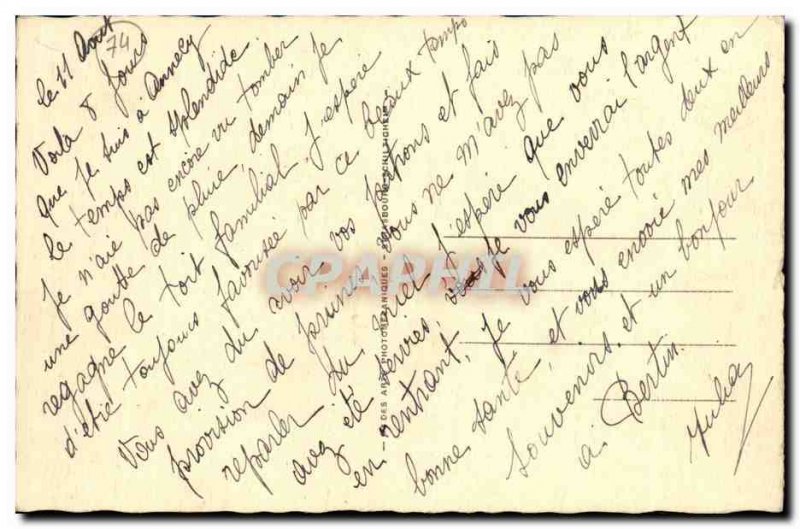 le 11 Août
74
Voilà 8 jours
que je suis à Annecy
le temps est splendide.
Je n'aie pas encore vu tomber
une goutte de pluie, demain je
regagne le toit familial, j'espère
d'être toujours favorisée par ce beaux temps
Vous avez du avoir vos patrons et fais
provision de prunes vous ne m'avez pas
reparler du mier j'espère que vous
avez été servies, je vous enverrai l'argent
en rentrant, je vous espère toutes deux en
bonne santé, et vous envoie mes meilleurs
souvenirs, et un bonjour
à Bertin.
CPAPHIL
DES ARTS PHOTOMÉCANIQUES